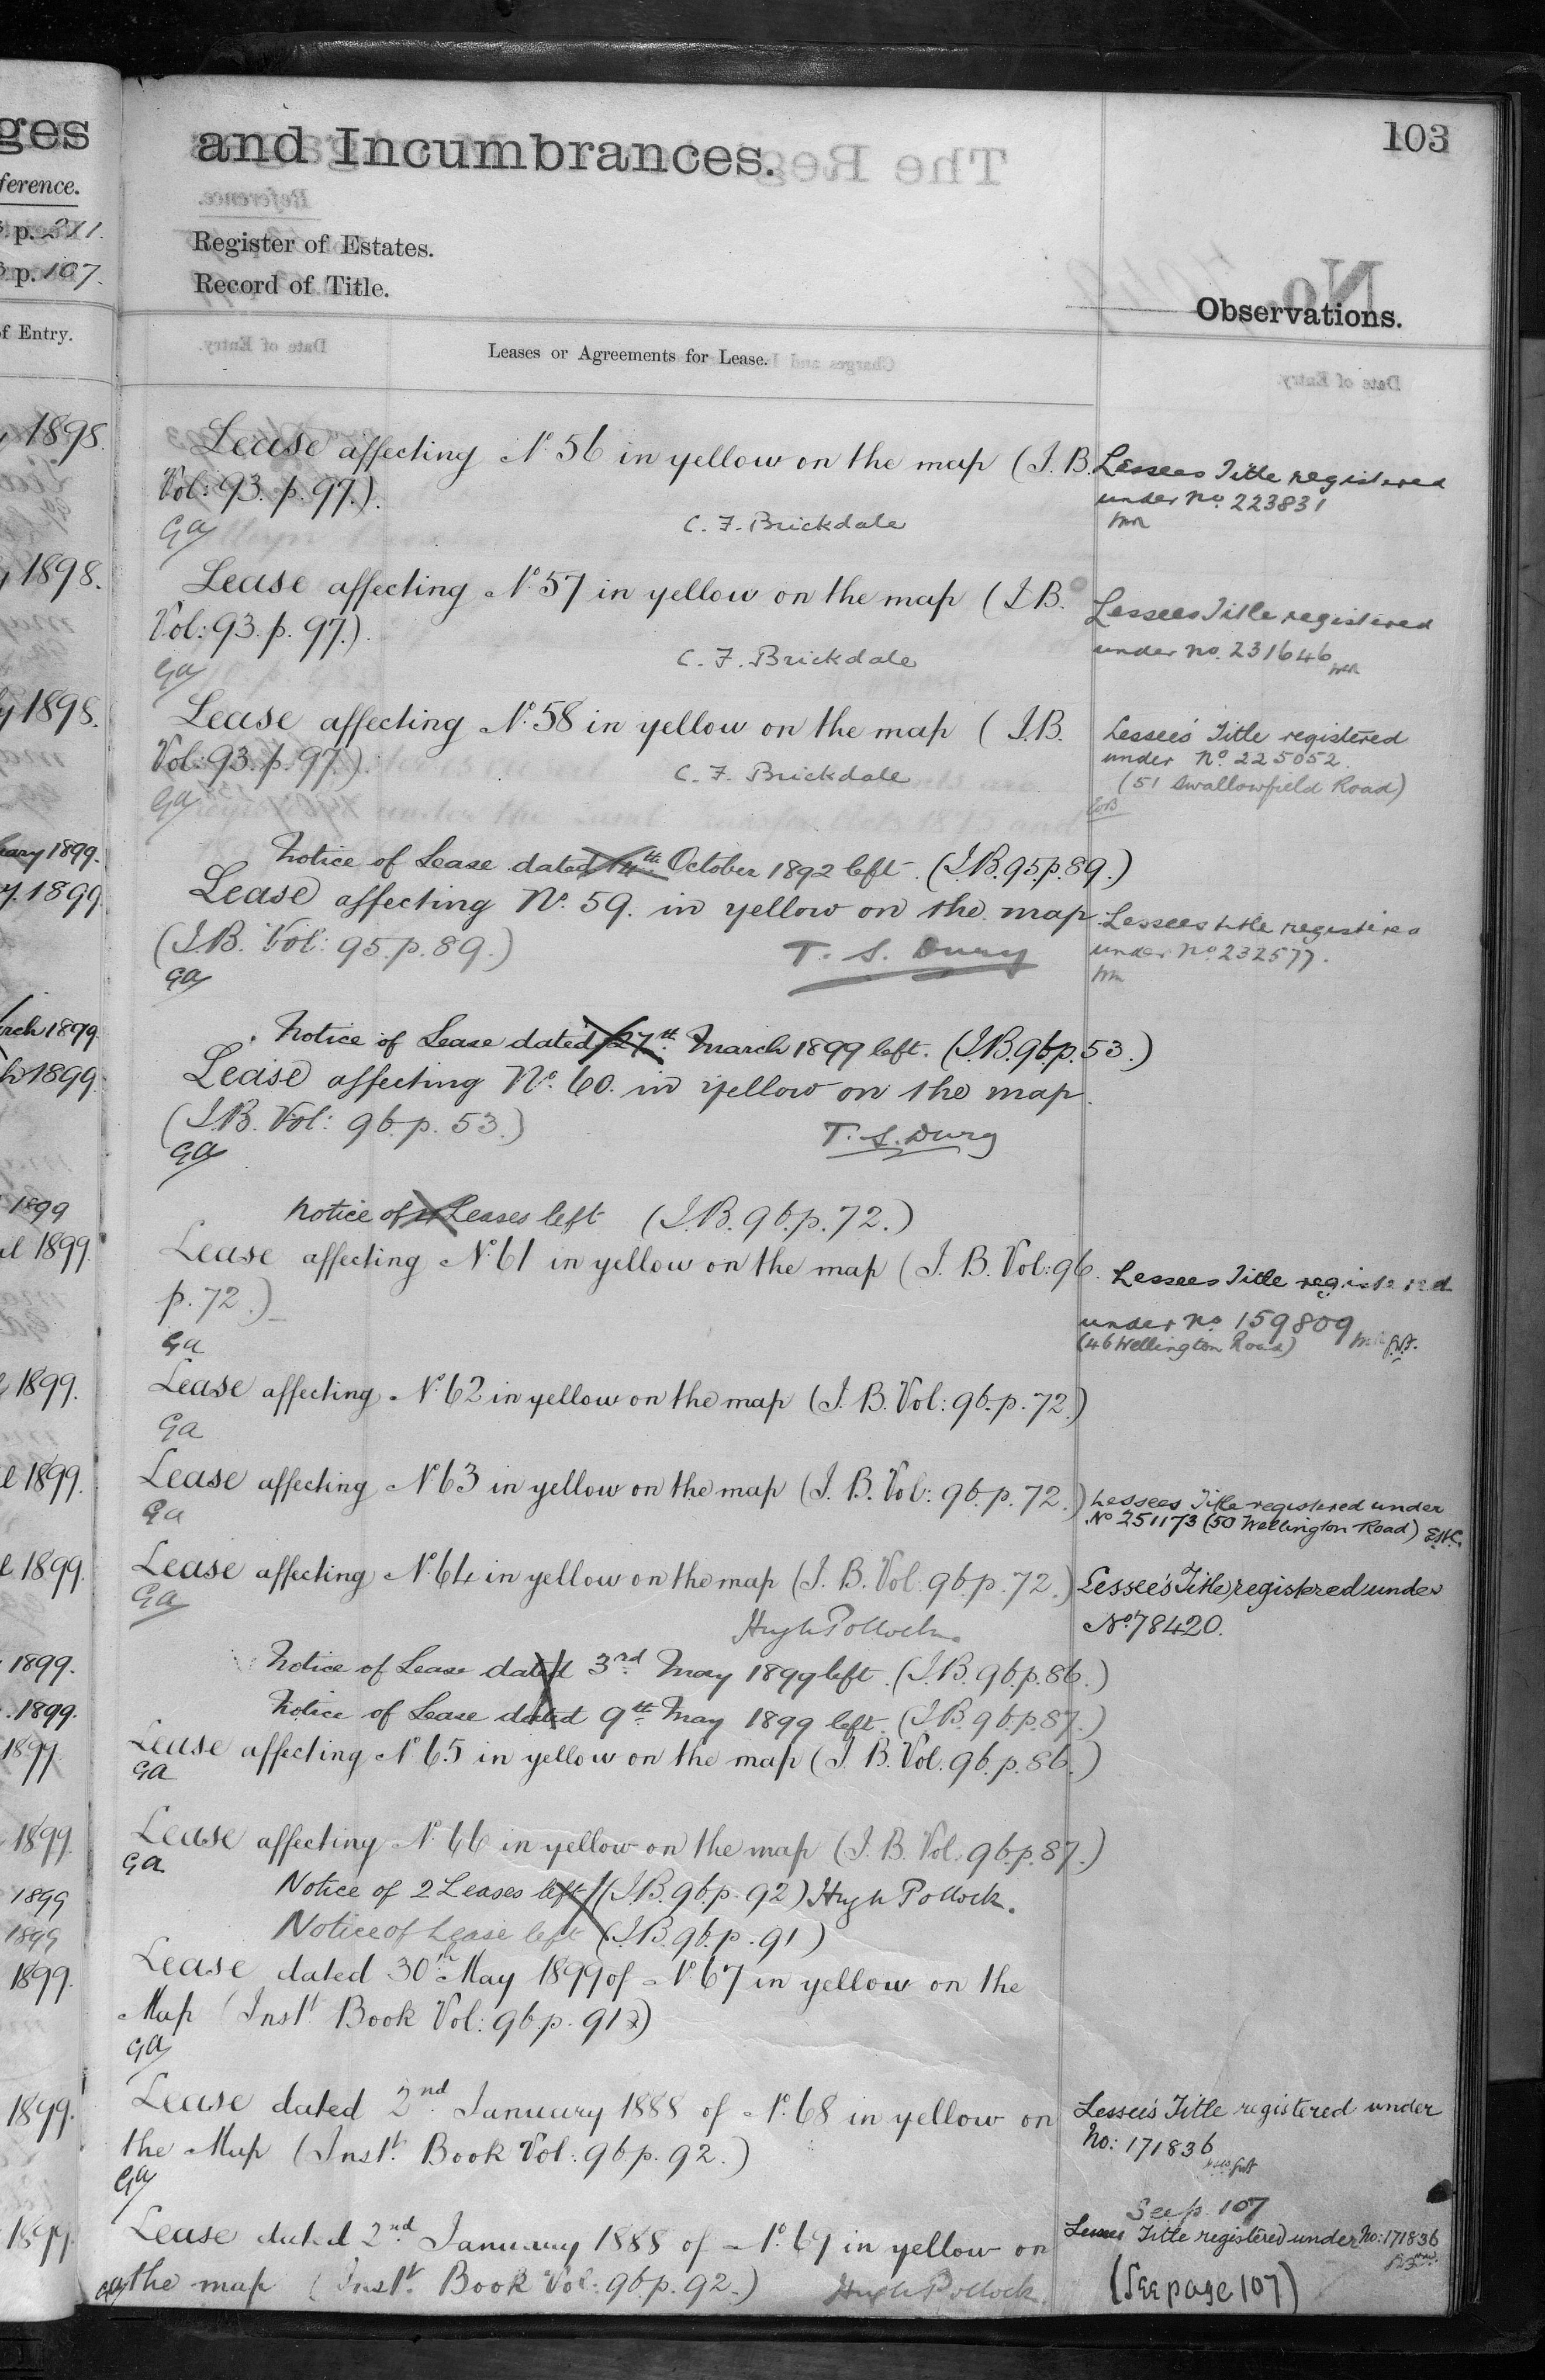 ges
ference.
p. 271.
p. 107.
of Entry.
1898.
1898.
1898.
uary 1899.
y. 1899.
rch 1899
h 1899.
1899
il 1899.
1899.
l 1899.
l 1899.
1899.
1899.
1899.
1899.
1899
1899
1899.
1899.
1899.
103
and Incumbrances.
Register of Estates.
Record of Title.
Observations.
Leases or Agreements for Lease.
Lease affecting No. 56 in yellow on the map (I.B.
Vol: 93. p. 97.).
Ga
C. F. Brickdale
Lessees Title registered
under No. 223831
Lease affecting No. 57 in yellow on the map (I.B.
Vol: 93. p. 97.).
Ga
C. F. Brickdale
Lessees Title registered
under no. 231646
Lease affecting No. 58 in yellow on the map (I.B.
Vol: 93. p. 97.).
Ga
C. F. Brickdale
Lessee's Title registered
under No. 225052.
(51 Swallowfield Road)
Notice of Lease dated 14th October 1892 left. (I.B. 95. p. 89.)
Lease affecting No. 59. in yellow on the map
(I.B. Vol: 95. p. 89.)
Ga
T. S. Dury
Lessees title registered
under No. 232577.
Notice of Lease dated 27th March 1899 left. (I.B. 96. p. 53.)
Lease affecting No. 60. in yellow on the map.
(I.B. Vol: 96. p. 53.)
Ga
T. S. Dury
Notice of 4 Leases left (I.B. 96. p. 72.)
Lease affecting No. 61 in yellow on the map (I.B. Vol: 96.
p. 72.)
Ga
Lessees Title registered
under No. 159809
(46 Wellington Road)
Lease affecting No. 62 in yellow on the map (I.B. Vol: 96. p. 72.)
Ga
Lease affecting No. 63 in yellow on the map (I.B. Vol: 96. p. 72.)
Ga
Lessees Title registered under
No 251173 (50 Wellington Road)
Lease affecting No. 64 in yellow on the map (I.B. Vol: 96. p. 72.)
Ga
Hugh Pollock.
Lessee's Title registered under
No. 78420.
Notice of Lease dated 3rd May 1899 left. (I.B. 96. p. 86.)
Notice of Lease dated 9th May 1899 left. (I.B. 96. p. 87.)
Lease affecting No. 65 in yellow on the map (I.B. Vol. 96. p. 86.)
Ga
Lease affecting No. 66 in yellow on the map (I.B. Vol. 96. p. 87.)
Ga
Notice of 2 Leases left (I.B. 96. p. 92) Hugh Pollock.
Notice of Lease left (I.B. 96. p. 91)
Lease dated 30th May 1899 of No. 67 in yellow on the
Map (Inst. Book Vol: 96. p. 91)
Ga
Lease dated 2nd January 1888 of No. 68 in yellow on
the Map (Inst. Book Vol: 96. p. 92.)
Ga
Lessee's Title registered under
No: 171836
See p. 107
Lease dated 2nd January 1888 of No. 69 in yellow on
the map (Inst. Book Vol: 96. p. 92.)
Ga
Hugh Pollock.
Lessees Title registered under No: 171836
(See page 107)